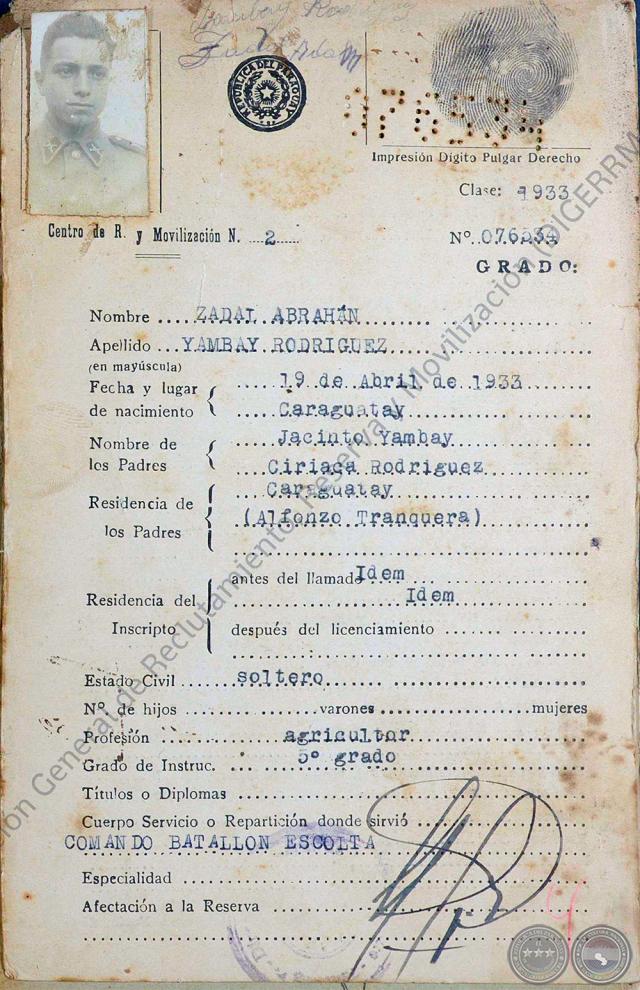 Yambay Rodriguez
REPUBLICA DEL PARAGUAY
076534
Impresión Dígito Pulgar Derecho
Clase: 1933
Centro de R. y Movilización N. 2
Nº 076534
GRADO:
Nombre ZADAL ABRAHÁN
Apellido YAMBAY RODRIGUEZ
(en mayúscula)
Fecha y lugar de nacimiento { 19 de Abril de 1933
Caraguatay
Nombre de los Padres { Jacinto Yambay
Ciriaca Rodriguez
Residencia de los Padres { Caraguatay
(Alfonzo Tranquera)
Residencia del Inscripto { antes del llamado Idem
Idem
después del licenciamiento
Estado Civil soltero
Nº. de hijos varones mujeres
Profesión agricultor
Grado de Instruc. 5º grado
Títulos o Diplomas
Cuerpo Servicio o Repartición donde sirvió
COMANDO BATALLON ESCOLTA
Especialidad
Afectación a la Reserva
General de Reclutamiento, Reserva y Movilización (DIGERRM